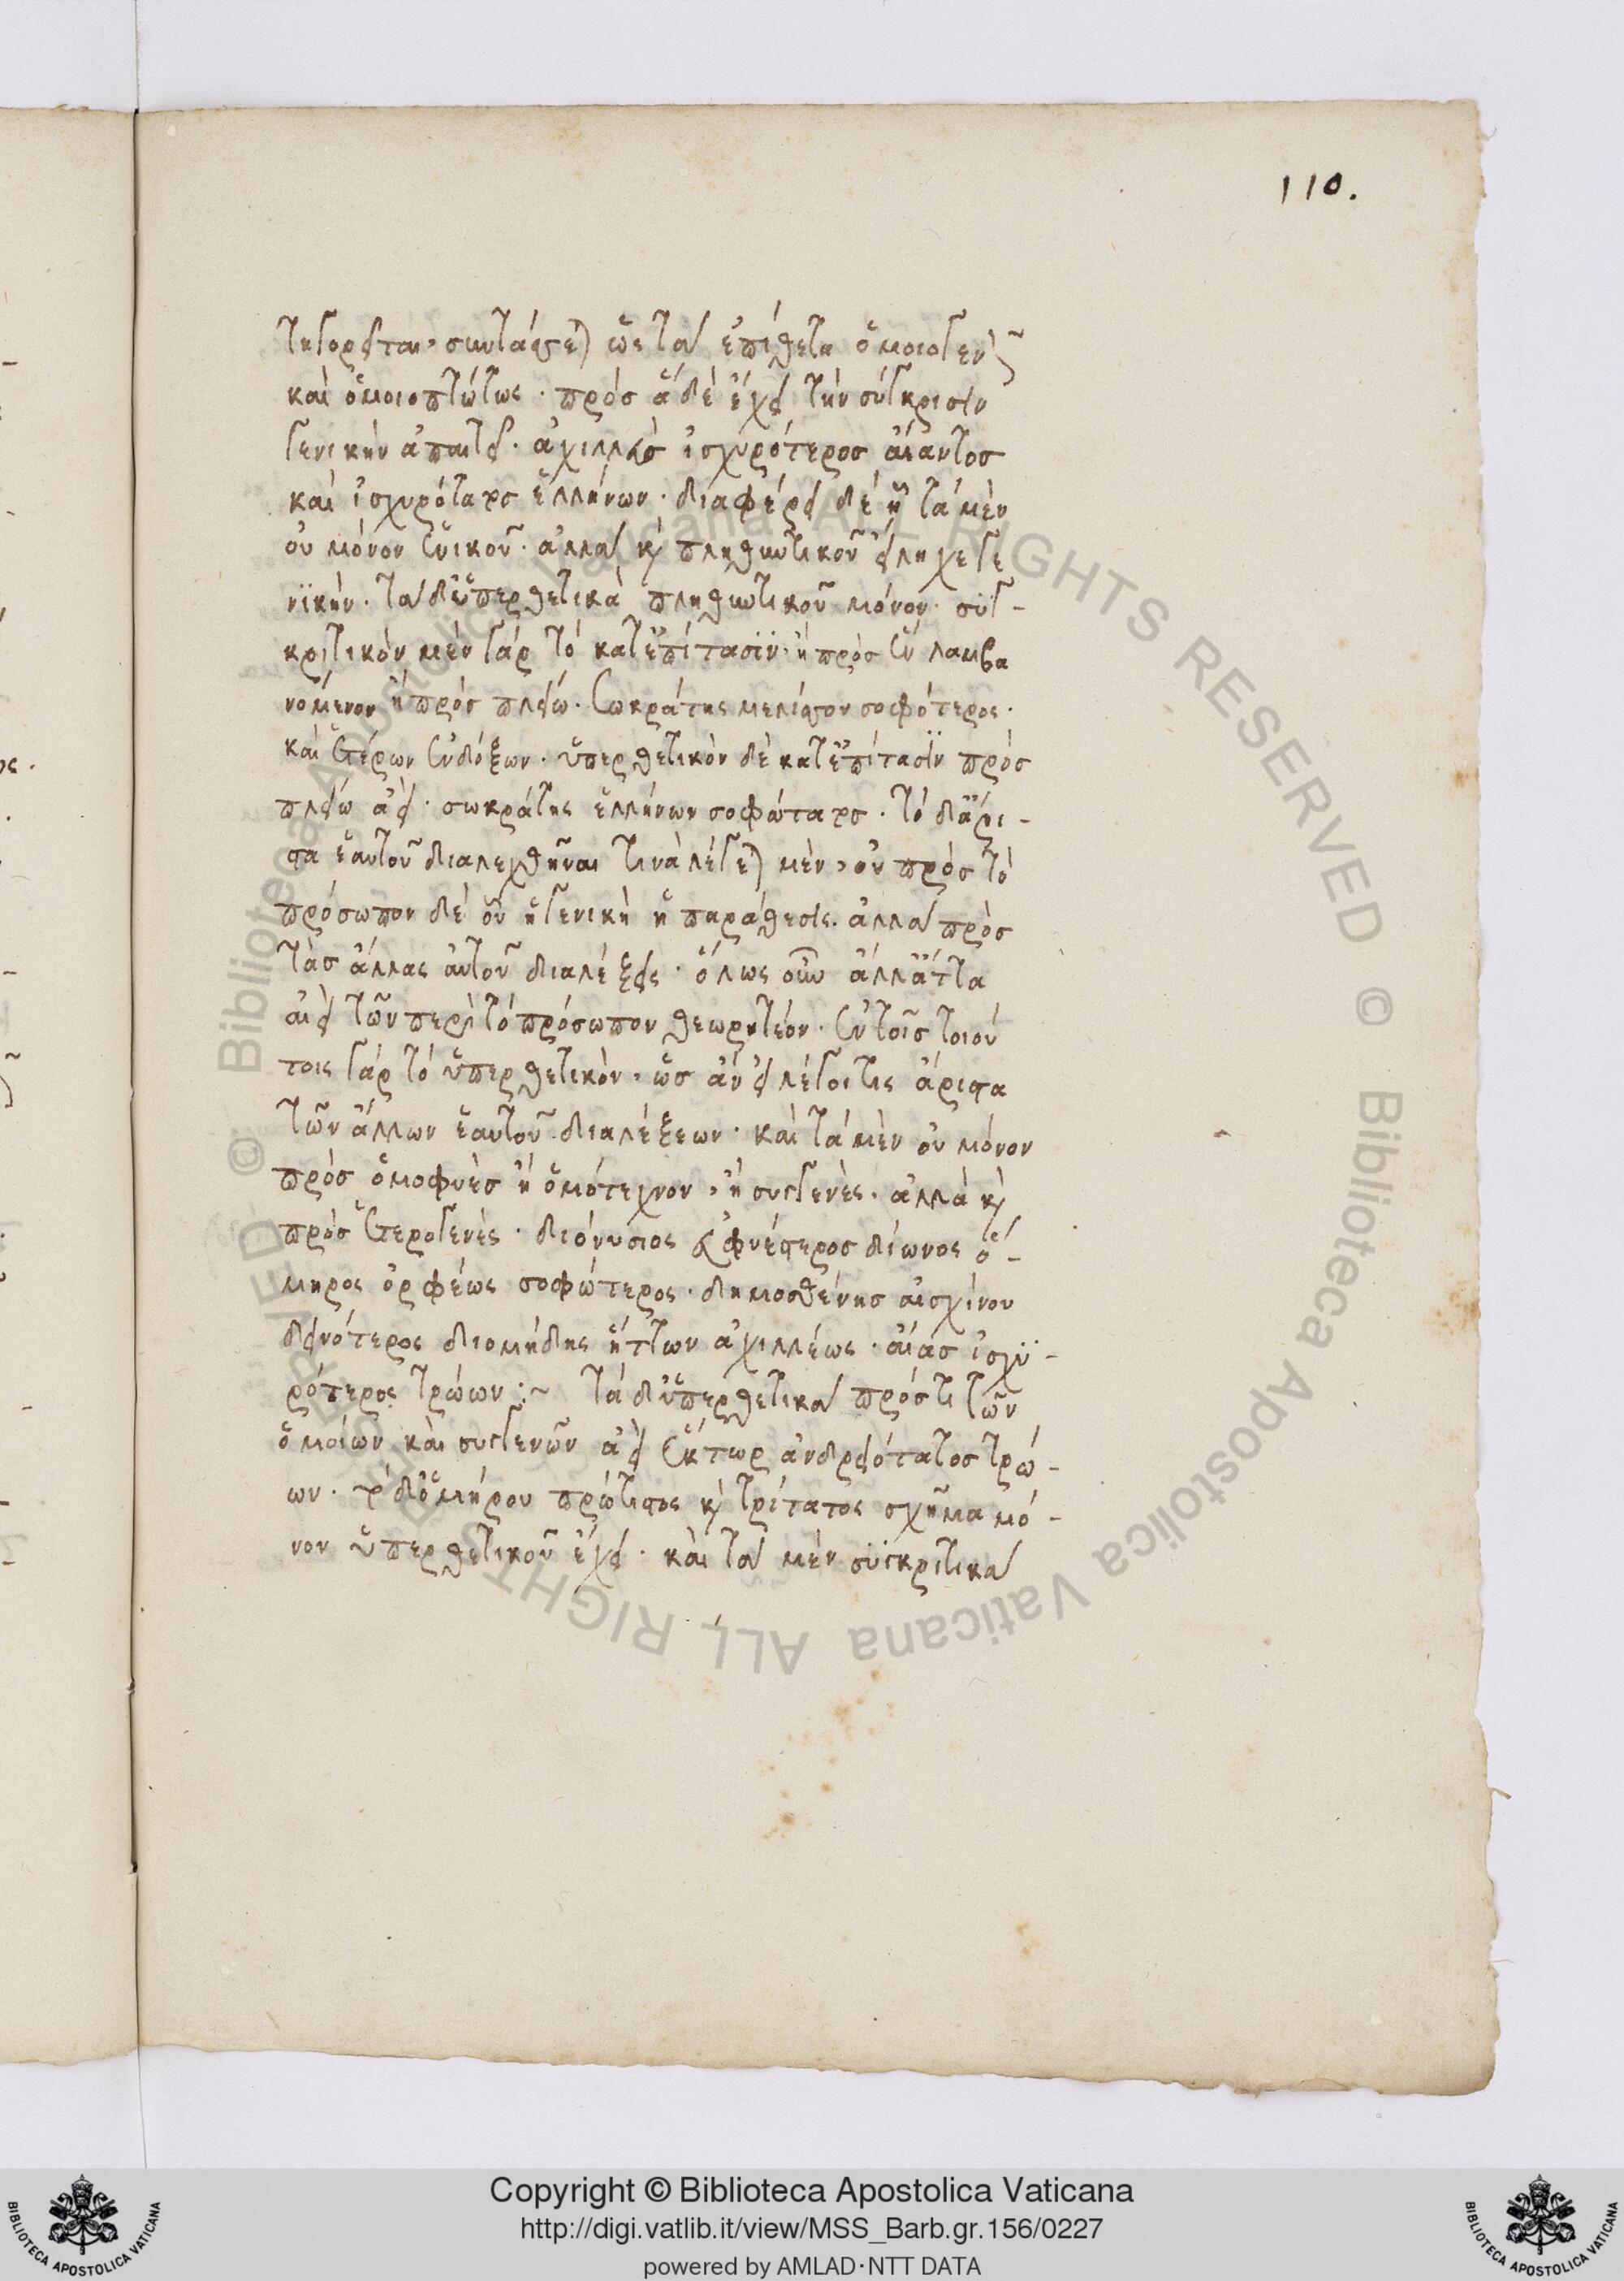 110.
τηγορεῖται, συντάσσεται ὡς τὰ ἐπίθετα ὁμοιογενῶς
καὶ ὁμοιοπτώτως · πρὸς ἃ δὲ ἔχει τὴν σύγκρισιν
γενικὴν ἀπαιτεῖ · ἀχιλλεὺς ἰσχυρότερος αἴαντος
καὶ ἰσχυρότατος ἑλλήνων · διαφέρει δὲ ᾗ τὰ μὲν
οὐ μόνον ἑνικοῦ · ἀλλὰ καὶ πληθυντικοῦ εἴληχε γε
νικήν · τὰ δ' ὑπερθετικὰ πληθυντικοῦ μόνον · συγ-
κριτικὸν μὲν γὰρ τὸ κατ' ἐπίτασιν · ἢ πρὸς ἓν λαμβα
νόμενον ἢ πρὸς πλείω · Σωκράτης μελίσσου σοφότερος ·
καὶ ἑτέρων ἐνδόξων · ὑπερθετικὸν δὲ κατ' ἐπίτασιν πρὸς
πλείω ἀεὶ · σωκράτης ἑλλήνων σοφώτατος · τὸ δ' ἄρι-
στα ἑαυτοῦ διαλεχθῆναι τινὰ λέγεται μὲν, οὐ πρὸς τὸ
πρόσωπον δὲ οὗ ἡ γενικὴ ἡ παράθεσις · ἀλλὰ πρὸς
τὰς ἄλλας αὐτοῦ διαλέξεις · ὅλως οὖν ἀλλ' ἄττα
αἰεὶ τῶν περὶ τὸ πρόσωπον θεωρητέον · ἐν τοῖς τοιού
τοις γὰρ τὸ ὑπερθετικὸν, ὡς ἂν εἰ λέγοι τις ἄριστα
τῶν ἄλλων ἑαυτοῦ διαλέξεων · καὶ τὰ μὲν οὐ μόνον
πρὸς ὁμοφυὲς ἢ ὁμότεχνον, ἢ συγγενὲς · ἀλλὰ καὶ
πρὸς ἑτερογενὲς · διονύσιος ἀφνέστερος δίωνος ὅ-
μηρος ὀρφέως σοφώτερος · δημοσθένης αἰσχίνου
δεινότερος διομήδης ἥττων ἀχιλλέως · αἴας ἰσχυ-
ρότερος τρώων :~ τὰ δ' ὑπερθετικὰ πρός τι τῶν
ὁμοίων καὶ συγγενῶν ἀεὶ ἕκτωρ ἀνδρειότατος τρώ-
ων · τὸ δ' ὁμήρου πρώτιστος καὶ τρίτατος σχῆμα μό-
νον ὑπερθετικοῦ ἔχει · καὶ τὰ μὲν συγκριτικὰ
Copyright © Biblioteca Apostolica Vaticana
http://digi.vatlib.it/view/MSS_Barb.gr.156/0227
powered by AMLAD·NTT DATA